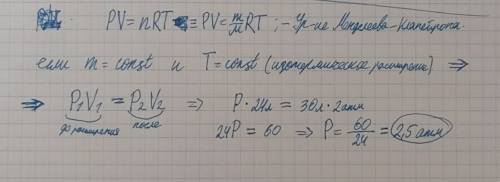 PV = nRT ≡ PV = m/μ RT ; - Ур-ие Менделеева-Клапейрона.
если m = const и T = const (изотермическое расширение) ⇒
⇒ P₁V₁ = P₂V₂ ⇒ P · 24л = 30л · 2атм
до расширения после 24P = 60 ⇒ P = 60/24 = 2,5 атм